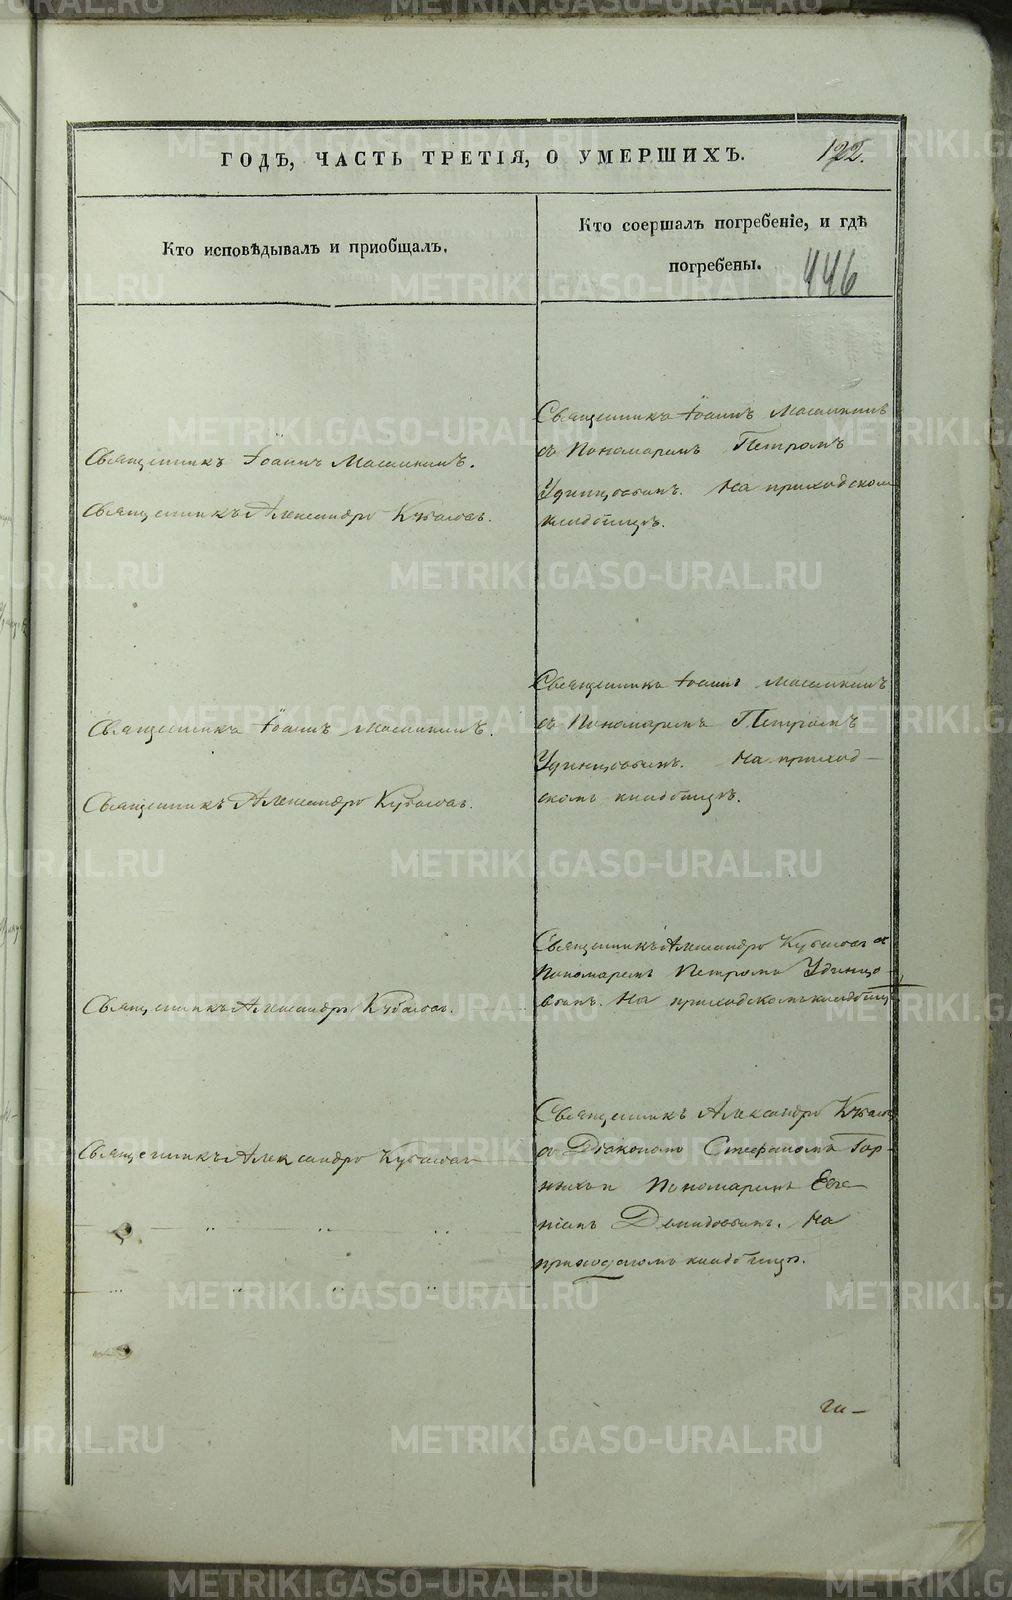 ГОДЪ, ЧАСТЬ ТРЕТІЯ, О УМЕРШИХЪ. 122.
Кто исповѣдывалъ и приобщалъ.
Кто соершалъ погребеніе, и гдѣ
погребены. 446
Священникъ Іоаннъ
Священникъ Александръ
Священникъ Іоаннъ
съ Пономаремъ Петромъ
Удинцовымъ. На приходском
кладбищѣ.
Священникъ Іоаннъ
Священникъ Александръ
Священникъ Іоаннъ
съ Пономаремъ Петромъ
Удинцовымъ. На приход-
скомъ кладбищѣ.
Священникъ Александръ
Священникъ Александръ
Пономаремъ Петромъ Удинцо-
вымъ. На приходскомъ кладбищѣ
Священникъ Александръ
Священникъ Александръ
съ Діакономъ Стефаномъ
и Пономаремъ Евге-
ніемъ На
приходскомъ кладбищѣ.
METRIKI.GASO-URAL.RU